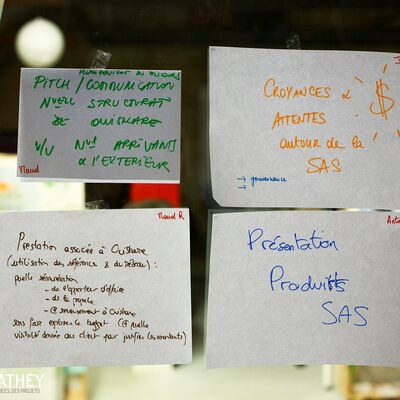 PITCH / COMMUNICATION
NVELLE STRUCTURAT
DE OUISHARE
V/V NVX ARRIVANTS
& L'EXTERIEUR
Maud
CROYANCES &
ATTENTES
autour de la
SAS
$
→ gouvernance
→
Maud R
Prestation associée à Ouishare
(utilisation des références & du réseau) :
quelle rémunération
- de l'apporteur d'affaire
- de la
- @ reversement à Ouishare
sans faire exploser le budget (@ quelle
visibilité donnée au client pour justifier les montants)
Anto
Présentation
Produits
SAS
ATHEY
DES PROJETS